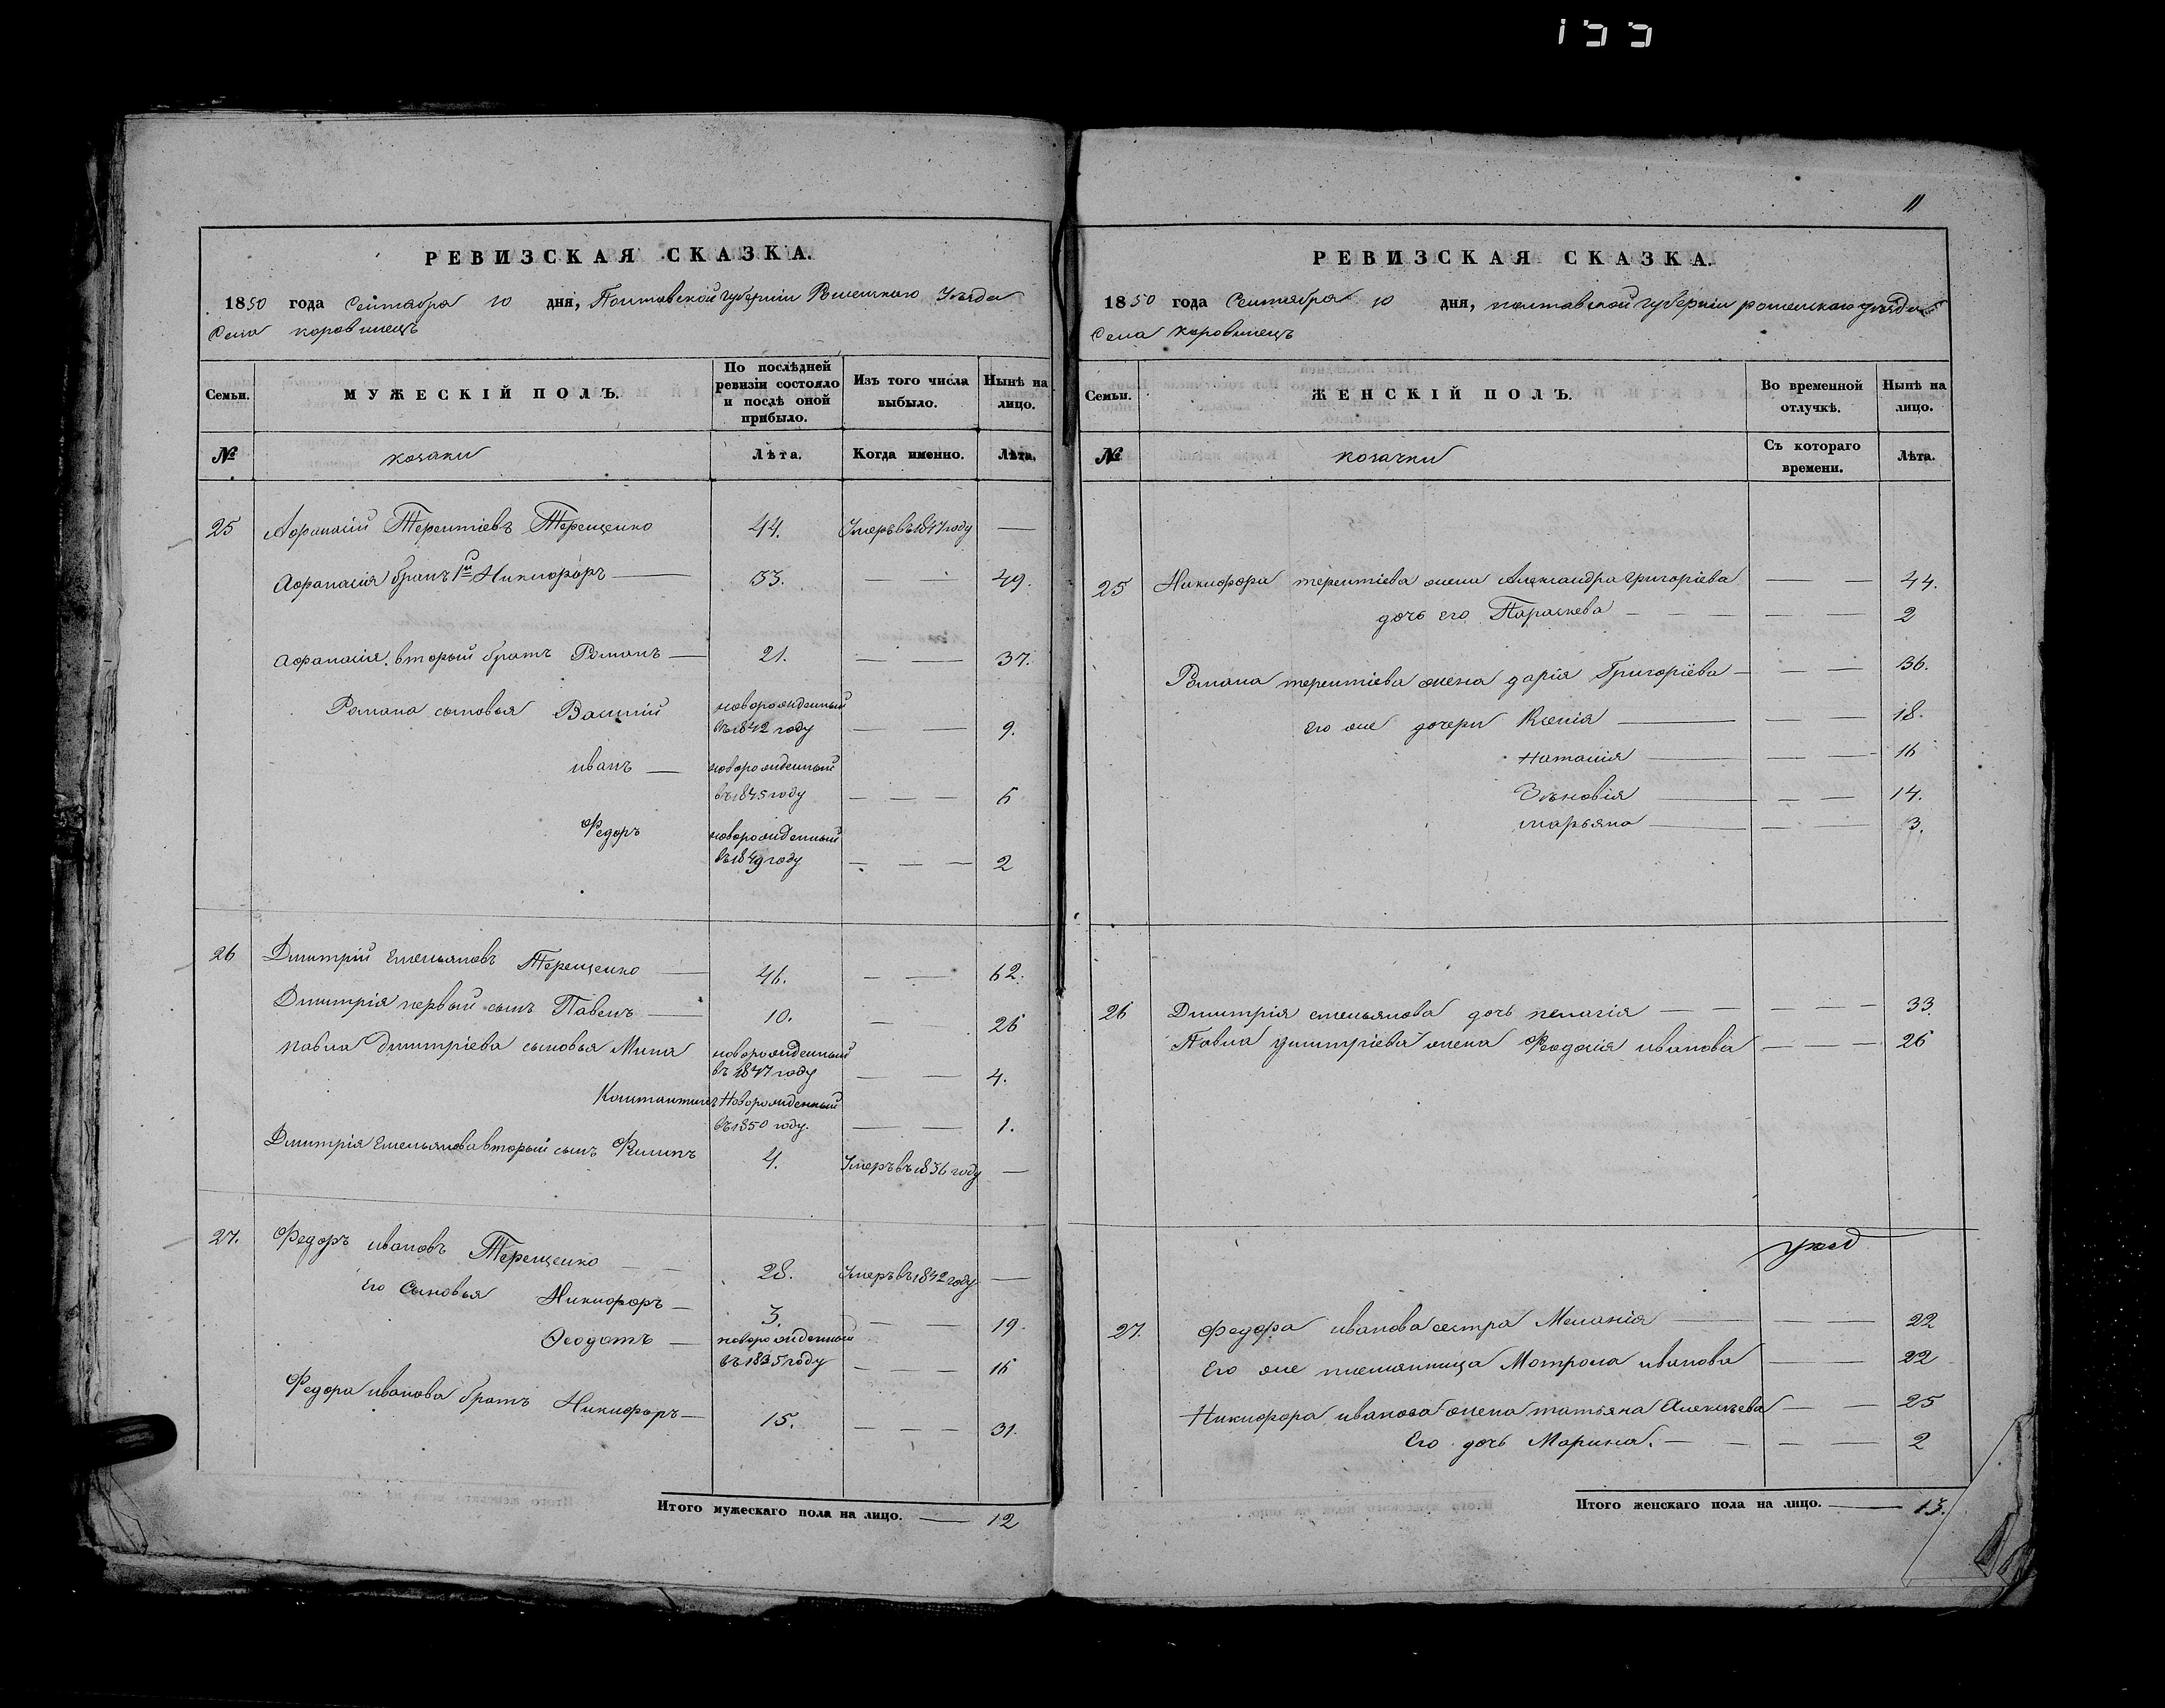 155
РЕВИЗСКАЯ СКАЗКА.
1850 года Сентября 10 дня, Полтавской губерніи Роменскаго Уезда
Села коровинецъ
Семьи.
МУЖЕСКІЙ ПОЛЪ.
По послѣдней ревизіи состояло и послѣ оной прибыло.
Изъ того числа выбыло.
Нынѣ на лицо.
№
козаки
Лѣта.
Когда именно.
Лѣта.
25 Афанасій Терентіевъ Терещенко 44. Умеръ въ 1847 году —
Афанасія братъ 1й Никифоръ — 33. — — 49.
Афанасія вторый братъ Романъ — 21. — — 37.
Романа сыновья Василій новорожденный
въ 1842 году — — 9.
иванъ — новорожденный
въ 1845 году — — — 6
Федоръ новорожденный
въ 1849 году — — — 2
26 Дмитрій Емельяновъ Терещенко — 46. — — 62.
Дмитрія первый сынъ Павелъ — 10. — 26
павла дмитріева сыновья Мина новорожденный
въ 1847 году — — 4.
Константинъ Новорожденный
въ 1850 году. — — 1.
Дмитрія Емельянова вторый сынъ Филипъ 4. Умеръ въ 1836 году —
27. Федоръ ивановъ Терещенко — — 28. Умеръ въ 1842 году —
Его Сыновья Никифоръ — 3. — — 19.
Феодотъ — новорожденный
въ 1835 году — — — 16
Федора иванова братъ Никифоръ — 15. — — — 31.
Итого мужескаго пола на лицо. — 12
11
РЕВИЗСКАЯ СКАЗКА.
1850 года Сентября 10 дня, полтавской губерніи роменскаго уезда
Села коровинецъ
Семьи.
ЖЕНСКІЙ ПОЛЪ.
Во временной отлучкѣ.
Нынѣ на лицо.
№
козачки
Съ котораго времени.
Лѣта.
25 Никифора терентіева жена Александра григоріева — — 44.
дочь его Параскева — — — — — 2
Романа терентіева жена дарія Григоріева — — — 36.
Его же дочери Ксенія — — — 18.
Наталія — — — 16
Зѣновія — — — 14.
марьяна — — — 3.
26 Дмитрія емельянова дочь пелагія — — — — — 33
Павла дмитріева жена Феодосія иванова — — — 26
27. Федора иванова сестра Меланія — — — 22
Его же племянница Мотрона иванова — — 22
Никифора иванова жена татьяна Алексѣева — — 25
Его дочь Марина. — — — — 2
Итого женскаго пола на лицо. — 13.